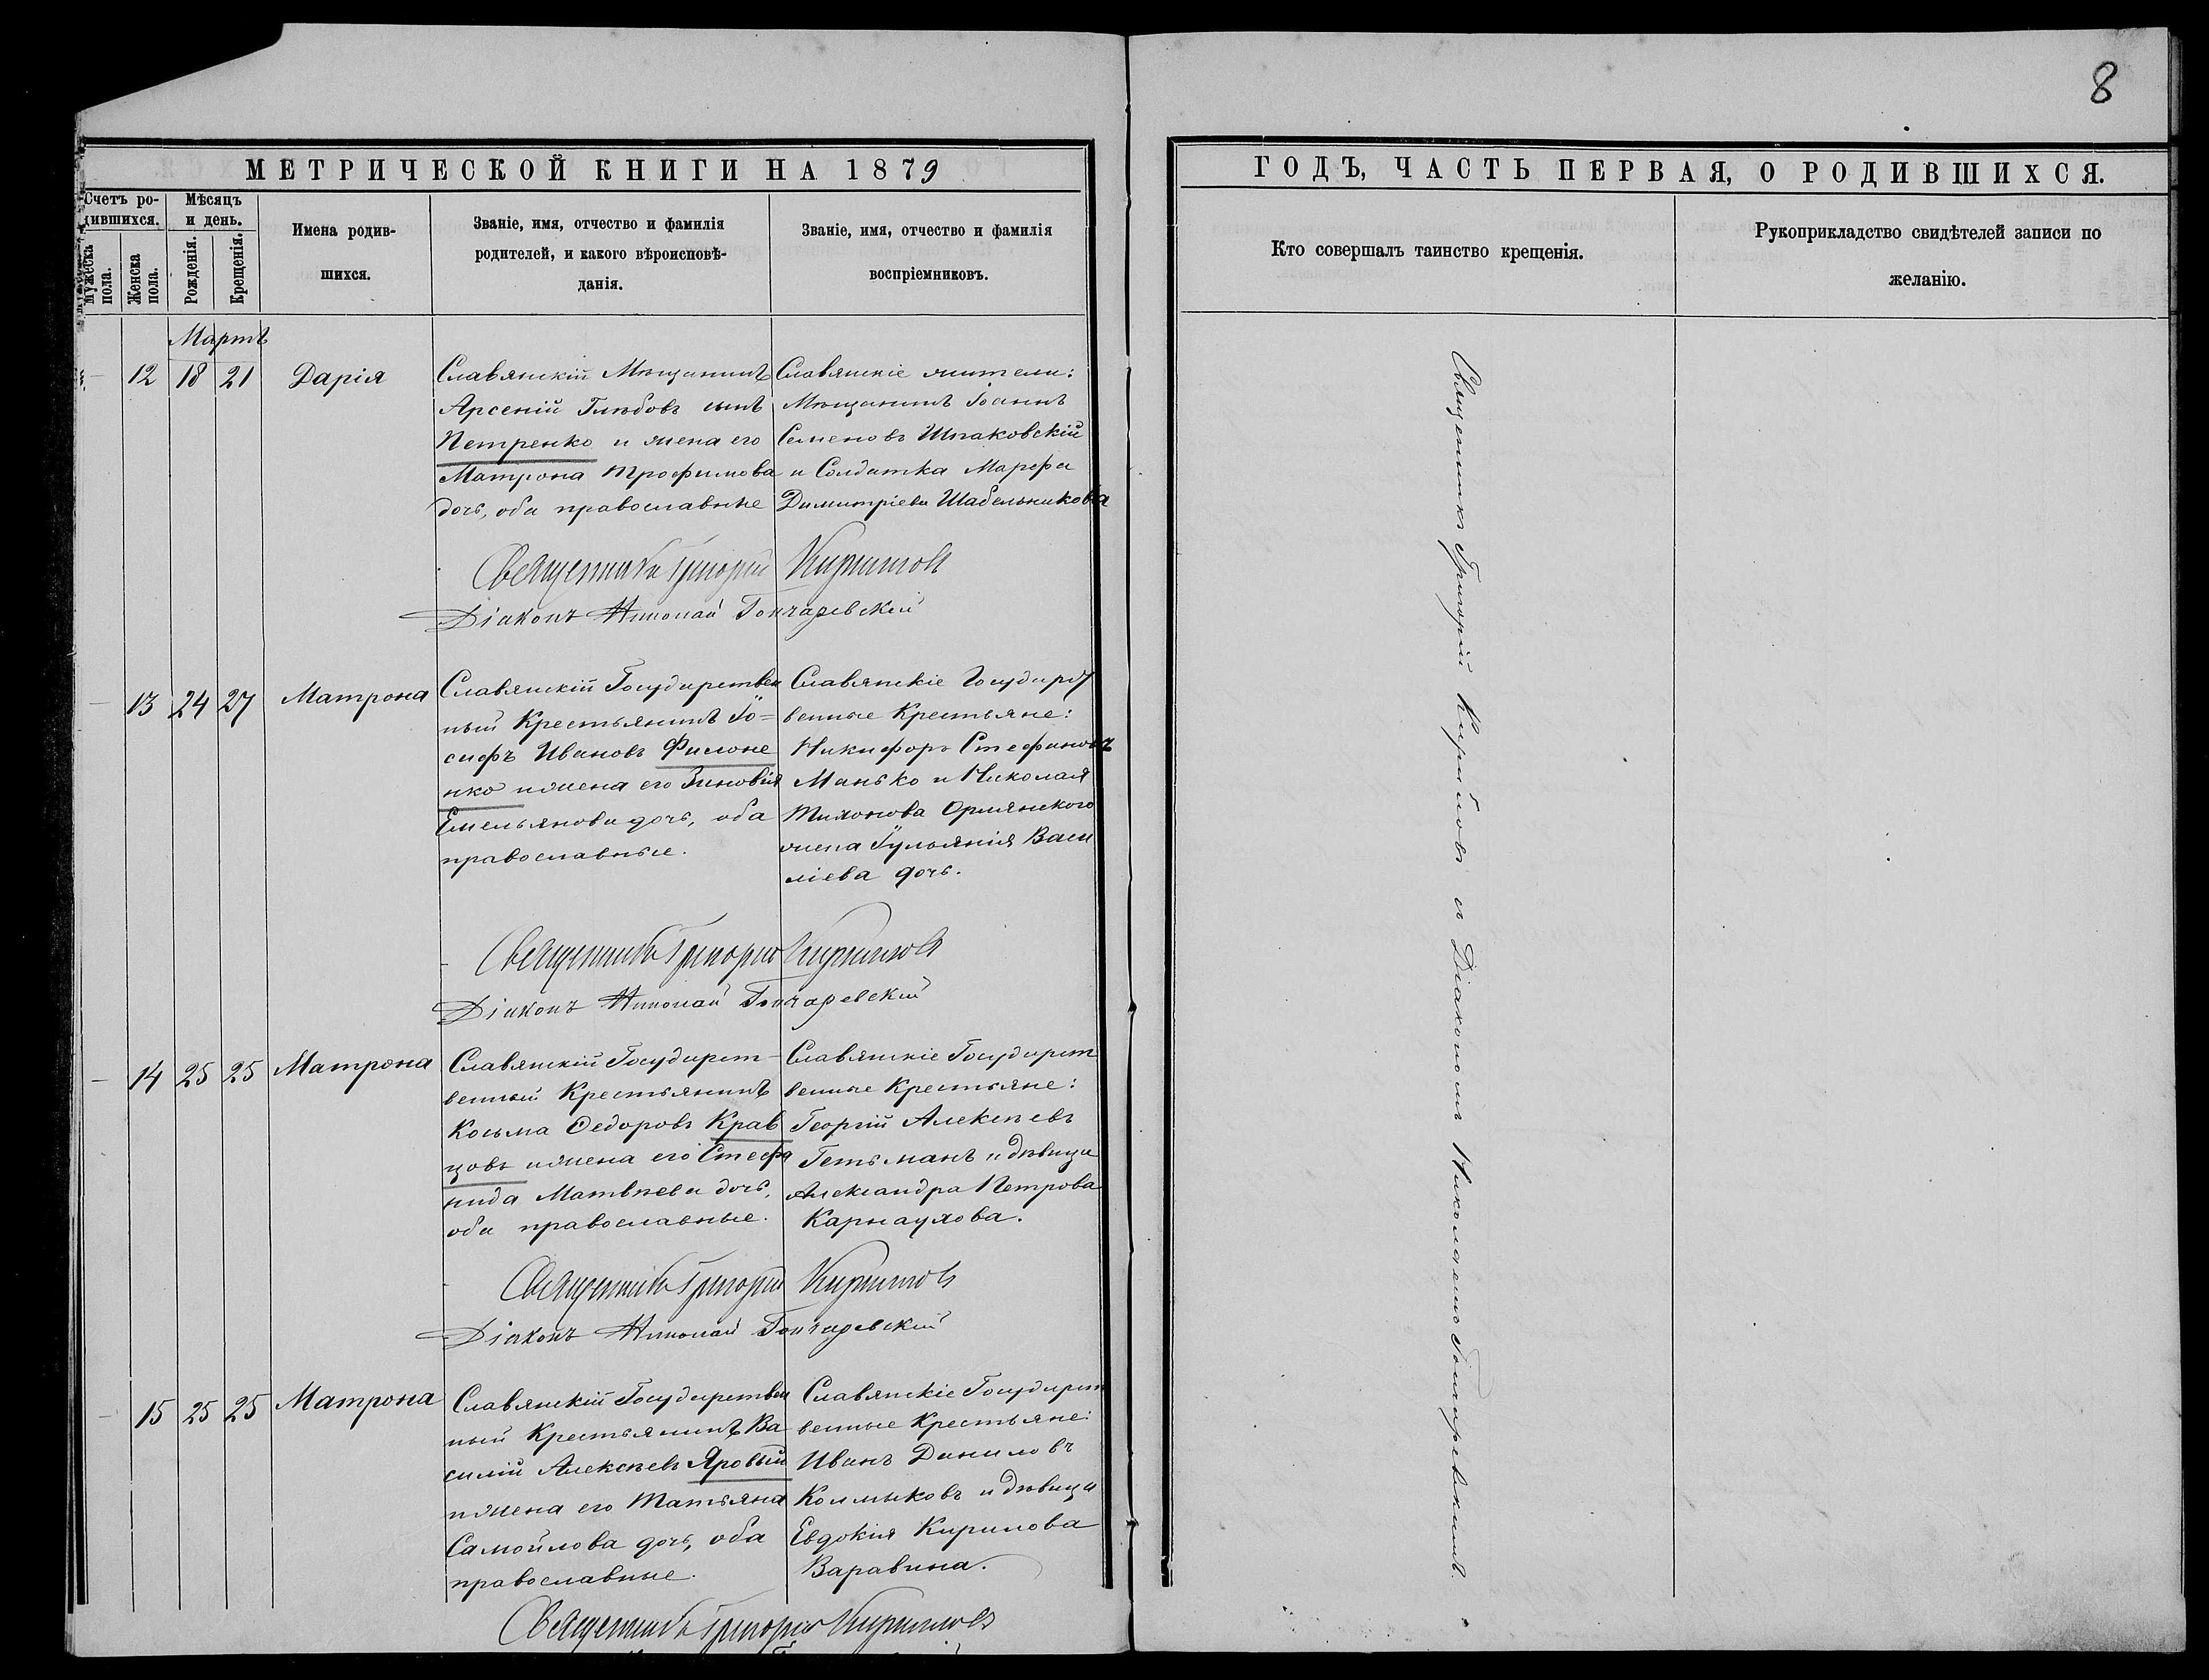 8
МЕТРИЧЕСКОЙ КНИГИ НА 1879
ГОДЪ, ЧАСТЬ ПЕРВАЯ, О РОДИВШИХСЯ.
Счетъ ро-
дившихся.
мужеска
пола.
Женска
пола.
Мѣсяцъ
и день.
Рожденія.
Крещенія.
Имена родив-
шихся.
Званіе, имя, отчество и фамилія
родителей, и какого вѣроисповѣ-
данія.
Званіе, имя, отчество и фамилія
воспріемниковъ.
Кто совершалъ таинство крещенія.
Рукоприкладство свидѣтелей записи по
желанію.
Мартъ
12 18 21 Дарія
Славянскій Мѣщанинъ
Арсеній Глѣбовъ сынъ
Петренко и жена его
Матрона Трофимова
дочь, оба православные
Славянскіе жители:
Мѣщанинъ Іоаннъ
Семеновъ Шпаковскій
и Солдатка Марфа
Димитріева Шабельникова
Священникъ Григорій Кириловъ
Діаконъ Николай Гончаревскій
13 24 27 Матрона
Славянскій Государствен
ный Крестьянинъ Іо=
сифъ Ивановъ Филоне
нко и жена его Зиновія
Емельянова дочь, оба
православные.
Славянскіе Государст
венные Крестьяне:
Никифоръ Стефановъ
Манько и Николая
Тихонова Ормянского
жена Іульянія Васи
ліева дочь.
Священникъ Григорій Кириловъ
Діаконъ Николай Гончаревскій
14 25 25 Матрона
Славянскій Государст-
венный Крестьянинъ
Косьма Ѳедоровъ Крав
цовъ и жена его Стефа
нида Матвѣева дочь,
оба православные.
Славянскіе Государст
венные Крестьяне:
Георгій Алексѣевъ
Гетьманъ и дѣвица
Александра Петрова
Карнаухова.
Священникъ Григорій Кириловъ
Діаконъ Николай Гончаревскій
15 25 25 Матрона
Славянскій Государствен
ный Крестьянинъ Ва
силій Алексѣевъ Яровый
и жена его Татьяна
Самойлова дочь, оба
православные.
Славянскіе Государст
венные Крестьяне:
Иванъ Даниловъ
Колмыковъ и дѣвица
Евдокія Кирилова
Варавина.
Священникъ Григорій Кириловъ
Священникъ Григорій Кириловъ с Діакономъ Николаемъ Гончаревскимъ.